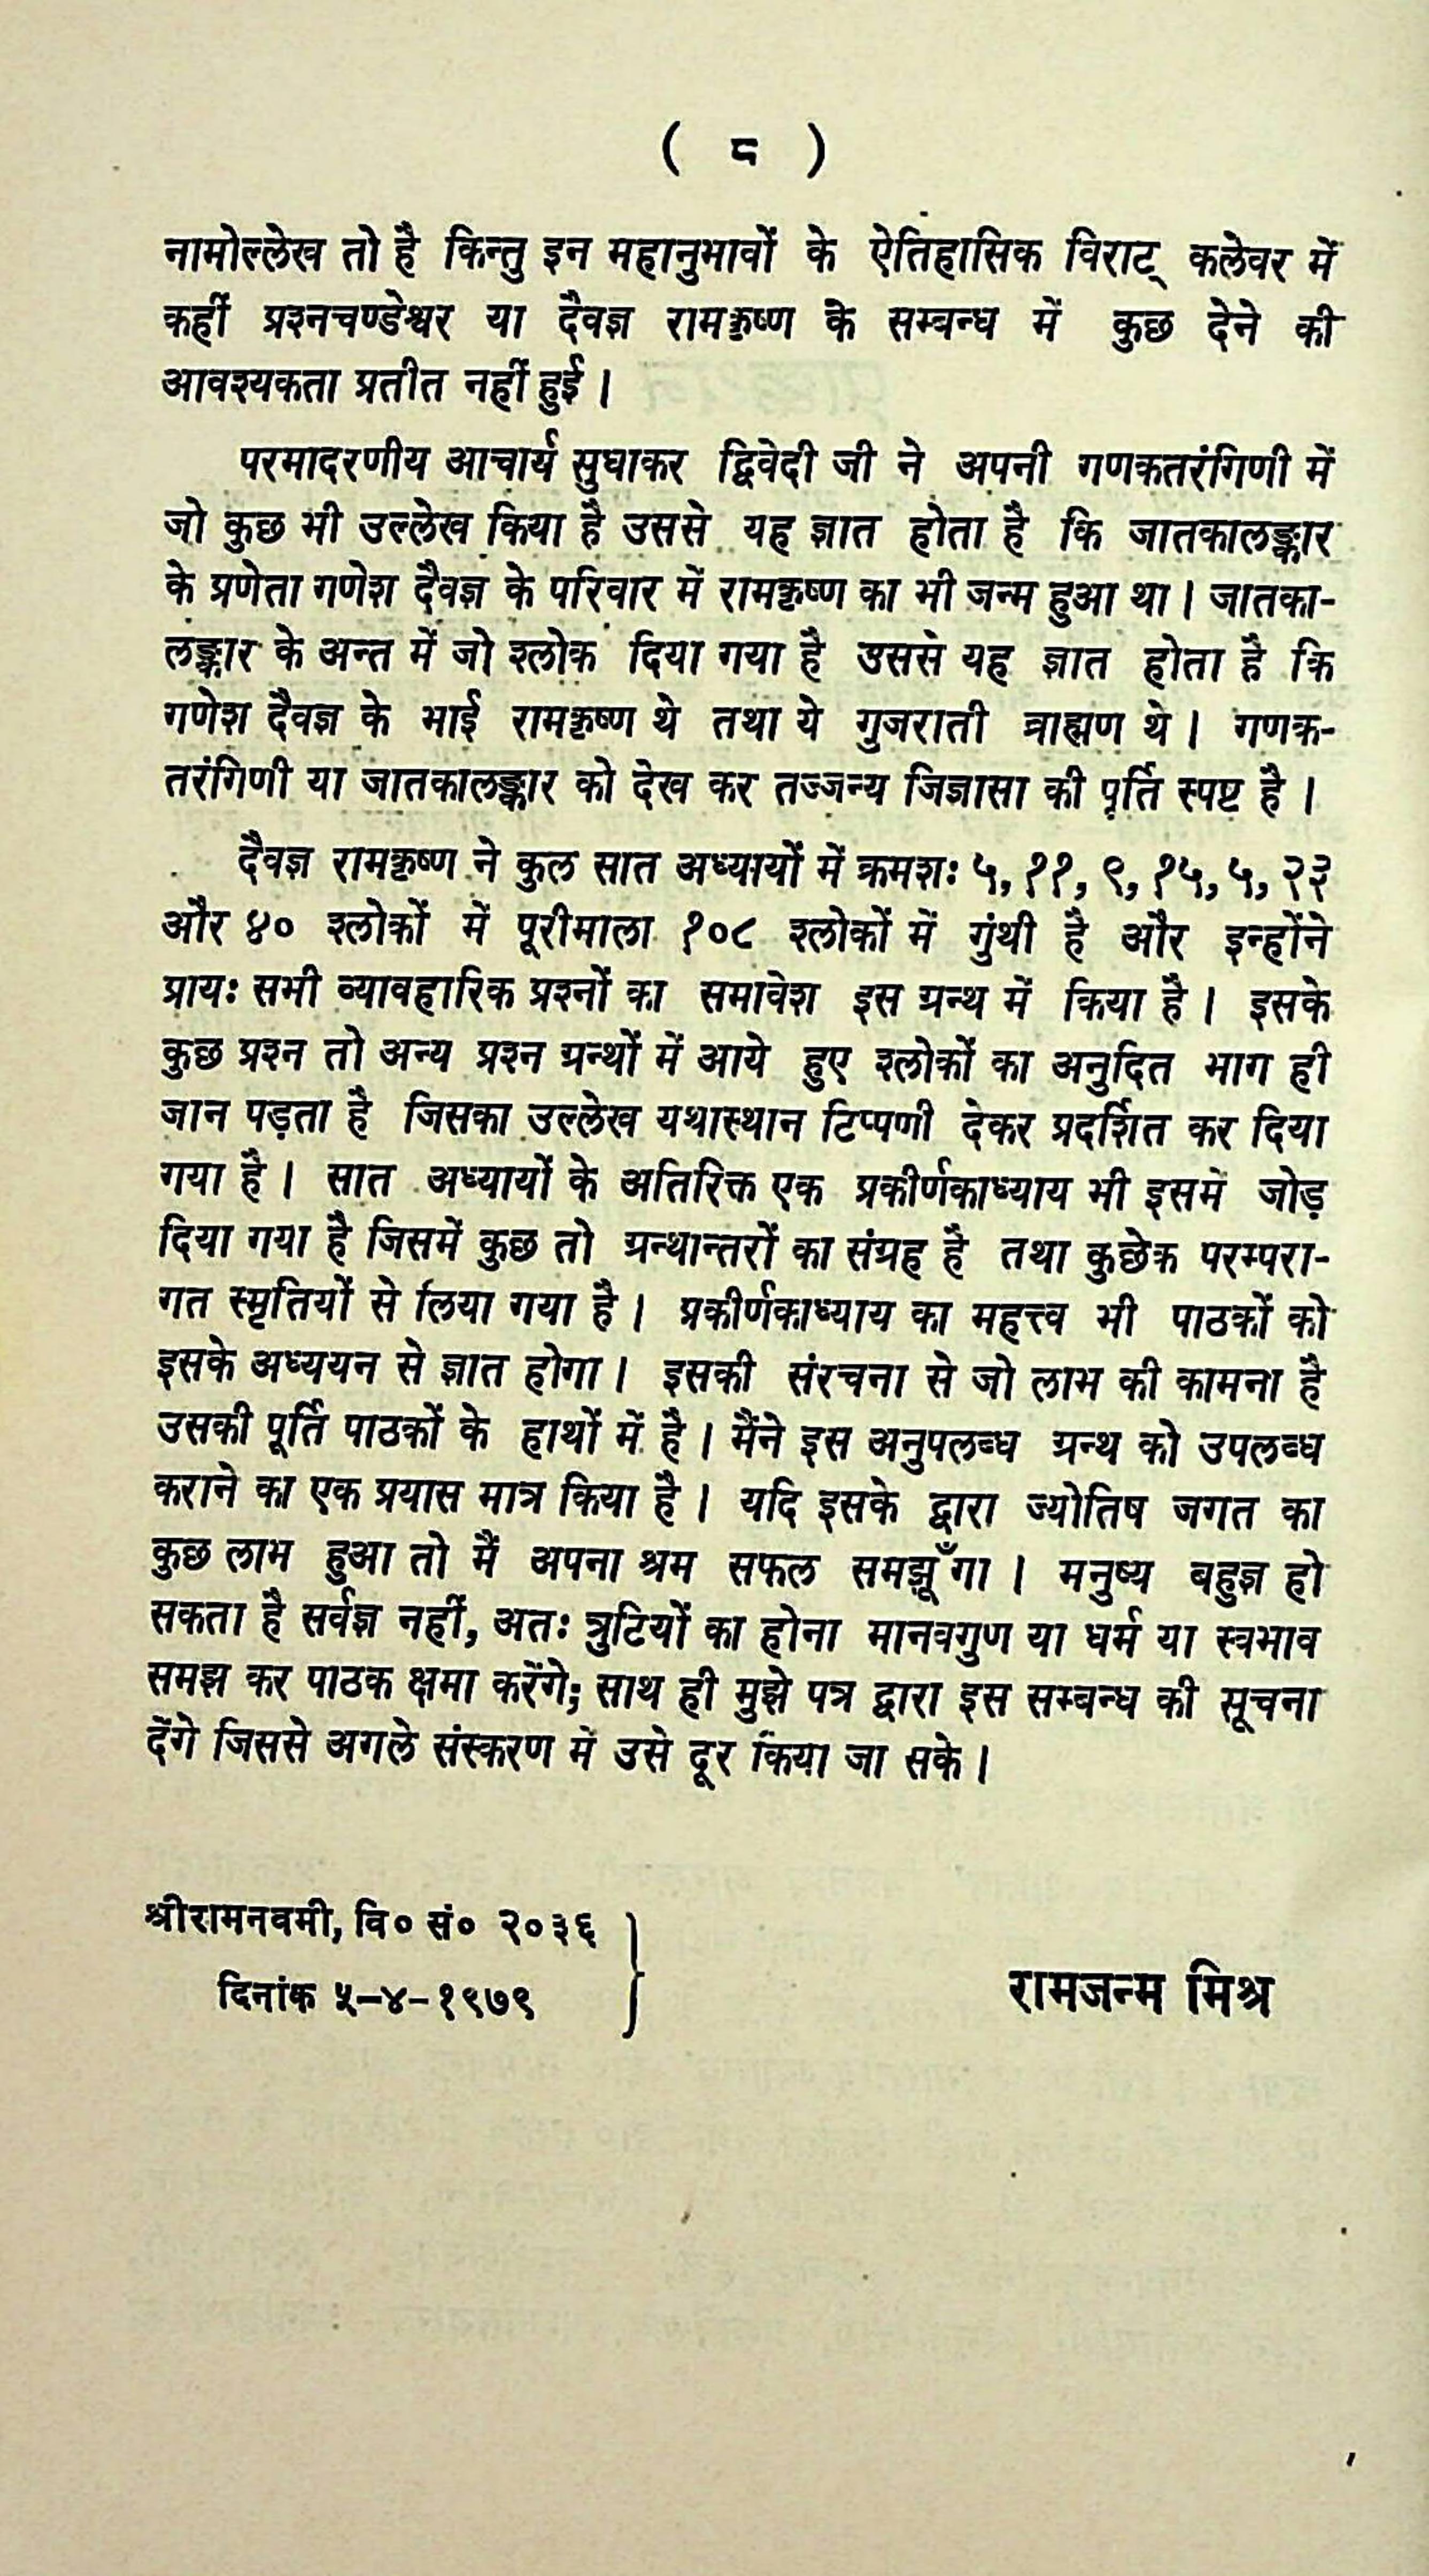 ( ८ )
नामोल्लेख तो है किन्तु इन महानुभावों के ऐतिहासिक विराट् कलेवर में
कहीं प्रश्नचण्डेश्वर या दैवज्ञ रामकृष्ण के सम्बन्ध में कुछ देने की
आवश्यकता प्रतीत नहीं हुई ।
परमादरणीय आचार्य सुधाकर द्विवेदी जी ने अपनी गणकतरंगिणी में
जो कुछ भी उल्लेख किया है उससे यह ज्ञात होता है कि जातकालङ्कार
के प्रणेता गणेश दैवज्ञ के परिवार में रामकृष्ण का भी जन्म हुआ था । जातका-
लङ्कार के अन्त में जो श्लोक दिया गया है उससे यह ज्ञात होता है कि
गणेश दैवज्ञ के भाई रामकृष्ण थे तथा ये गुजराती ब्राह्मण थे । गणक-
तरंगिणी या जातकालङ्कार को देख कर तज्जन्य जिज्ञासा की पूर्ति स्पष्ट है ।
दैवज्ञ रामकृष्ण ने कुल सात अध्यायों में क्रमशः ५, ११, ९, १५, ५, २३
और ४० श्लोकों में पूरीमाला १०८ श्लोकों में गुंथी है और इन्होंने
प्रायः सभी व्यावहारिक प्रश्नों का समावेश इस ग्रन्थ में किया है । इसके
कुछ प्रश्न तो अन्य प्रश्न ग्रन्थों में आये हुए श्लोकों का अनुदित भाग ही
जान पड़ता है जिसका उल्लेख यथास्थान टिप्पणी देकर प्रदर्शित कर दिया
गया है । सात अध्यायों के अतिरिक्त एक प्रकीर्णकाध्याय भी इसमें जोड़
दिया गया है जिसमें कुछ तो ग्रन्थान्तरों का संग्रह है तथा कुछेक परम्परा-
गत स्मृतियों से लिया गया है । प्रकीर्णकाध्याय का महत्त्व भी पाठकों को
इसके अध्ययन से ज्ञात होगा । इसकी संरचना से जो लाभ की कामना है
उसकी पूर्ति पाठकों के हाथों में है । मैंने इस अनुपलब्ध ग्रन्थ को उपलब्ध
कराने का एक प्रयास मात्र किया है । यदि इसके द्वारा ज्योतिष जगत का
कुछ लाभ हुआ तो मैं अपना श्रम सफल समझूँगा । मनुष्य बहुज्ञ हो
सकता है सर्वज्ञ नहीं, अतः त्रुटियों का होना मानवगुण या धर्म या स्वभाव
समझ कर पाठक क्षमा करेंगे; साथ ही मुझे पत्र द्वारा इस सम्बन्ध की सूचना
देंगे जिससे अगले संस्करण में उसे दूर किया जा सके ।
श्रीरामनवमी, वि० सं० २०३६
दिनांक ५-४-१९७९
रामजन्म मिश्र